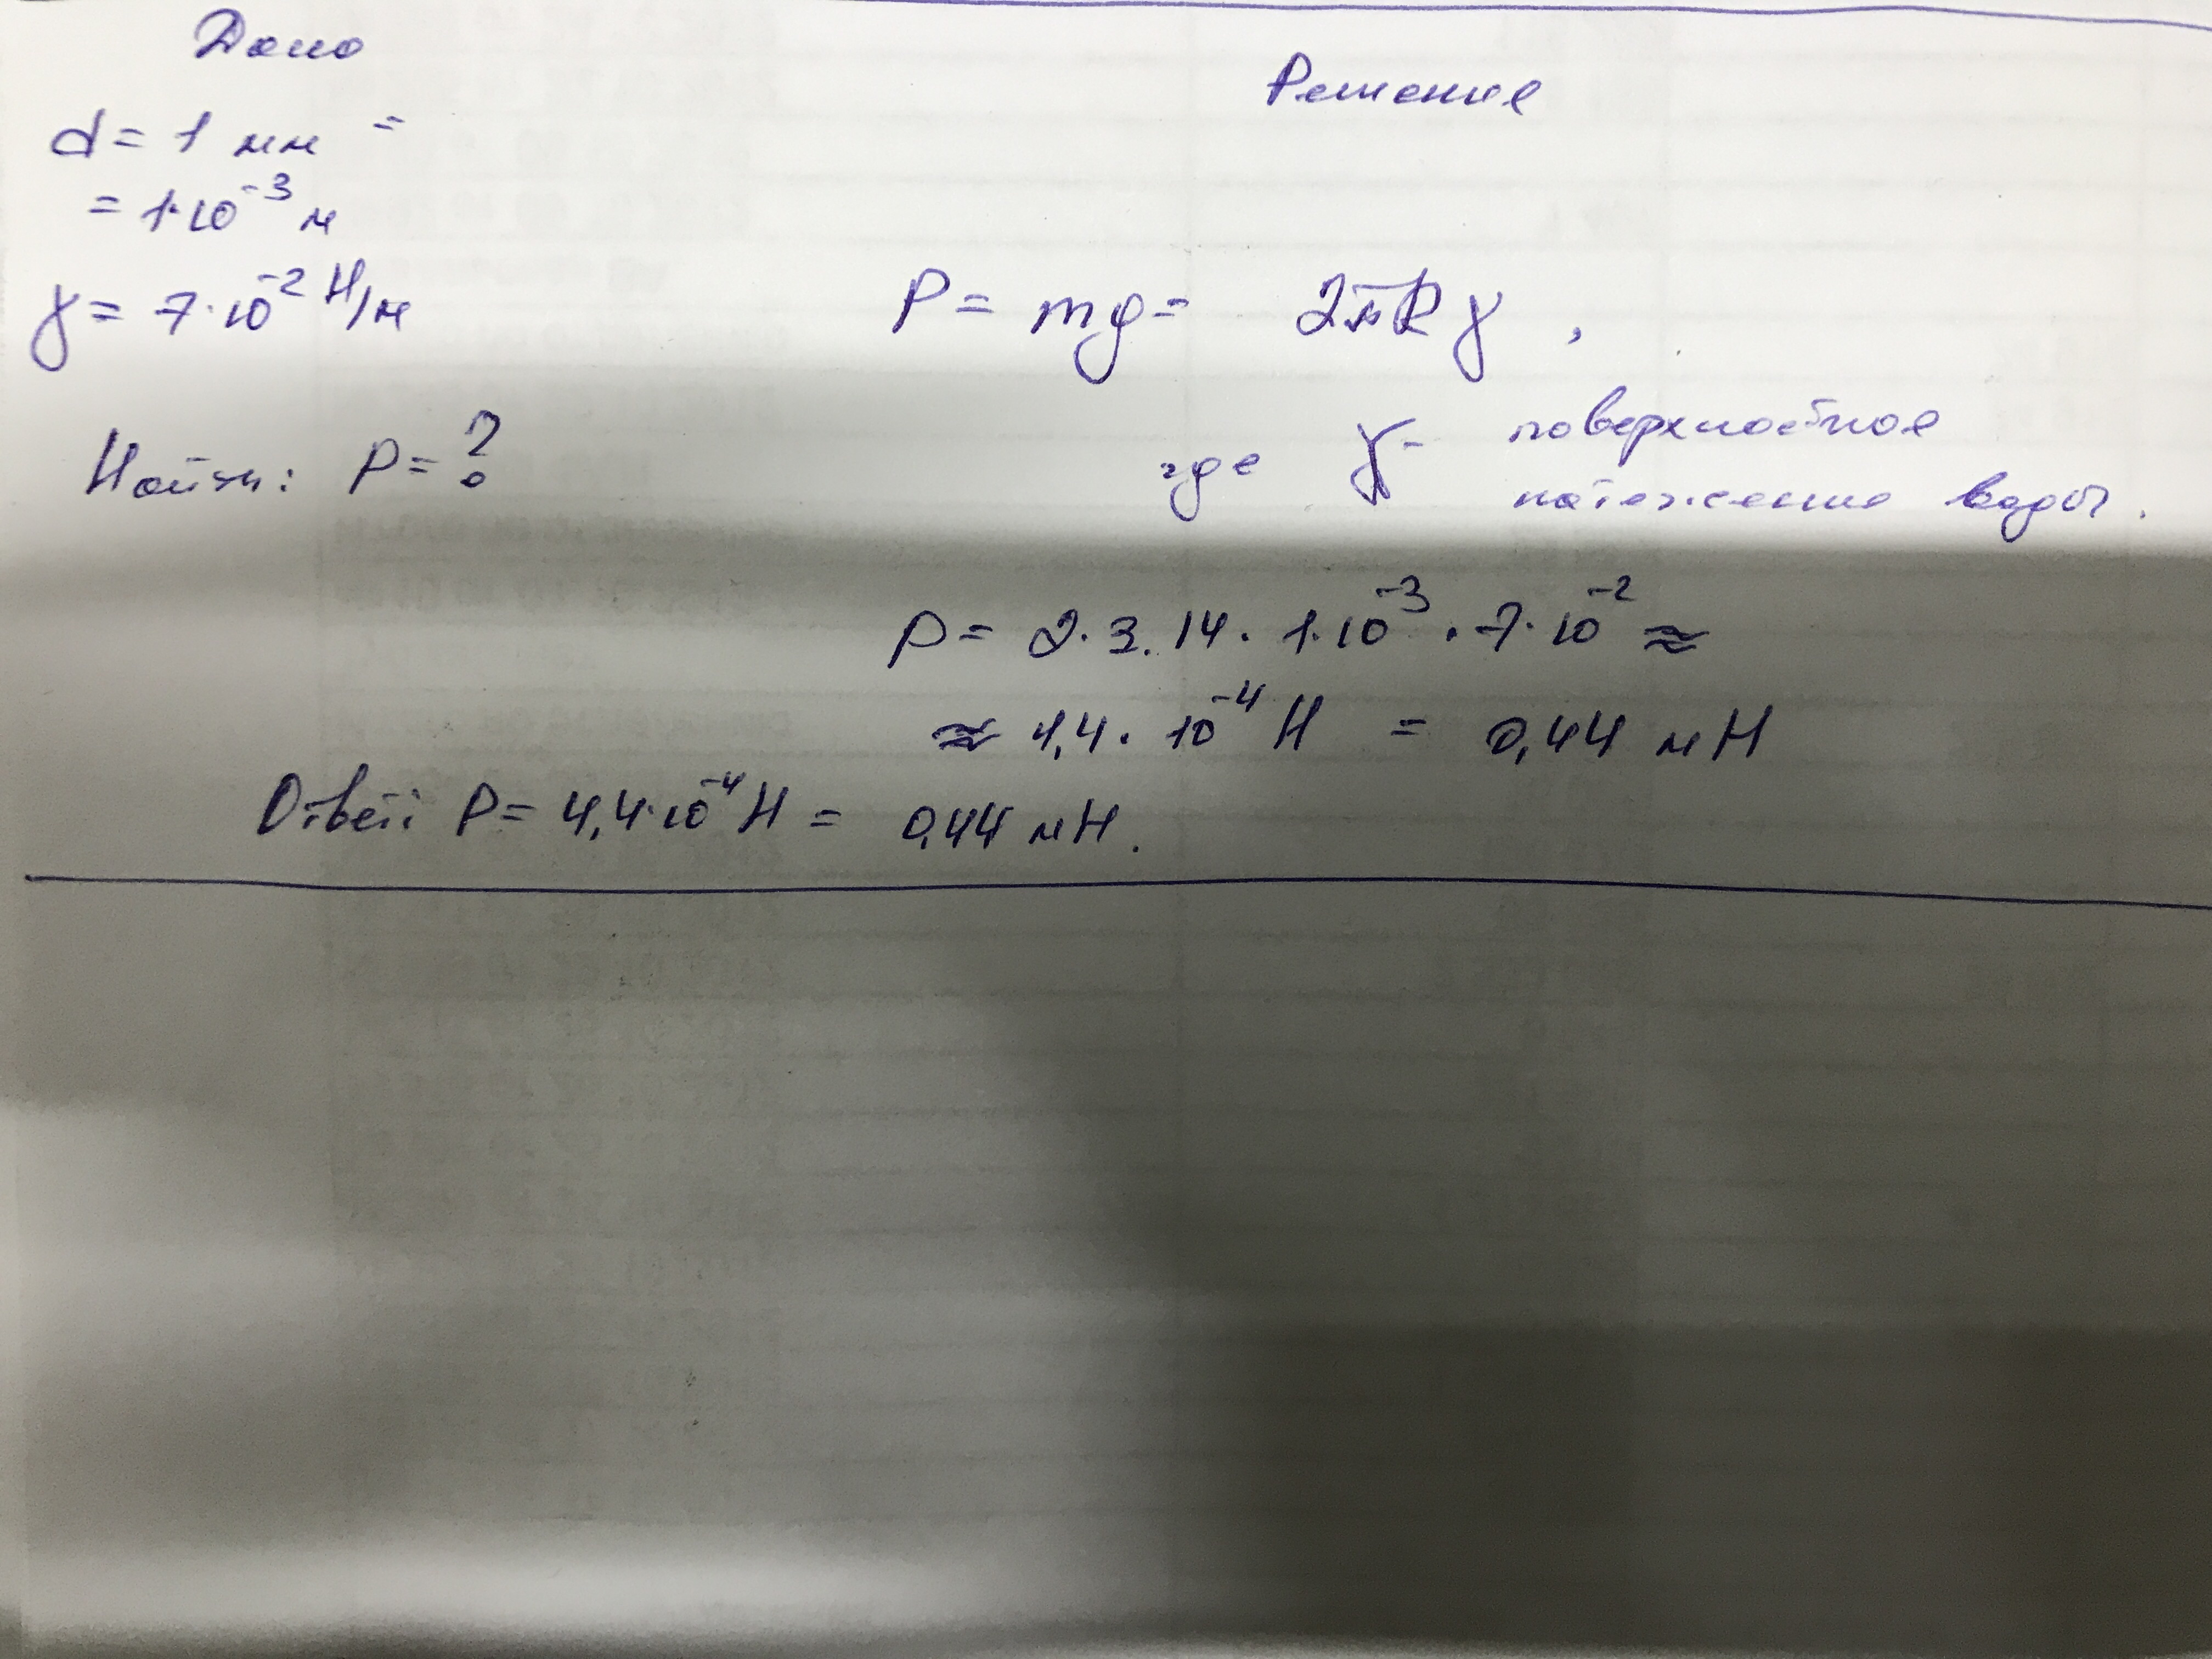 Дано
d = 1 мм =
= 1·10⁻³ м
γ = 7·10⁻² Н/м
Найти: P = ?
Решение
P = mg = 2πRγ,
где γ - поверхностное
натежение воды.
P = 2·3.14·1·10⁻³·7·10⁻² ≈
≈ 4,4·10⁻⁴ Н = 0,44 мН
Ответ: P = 4,4·10⁻⁴ Н = 0,44 мН.